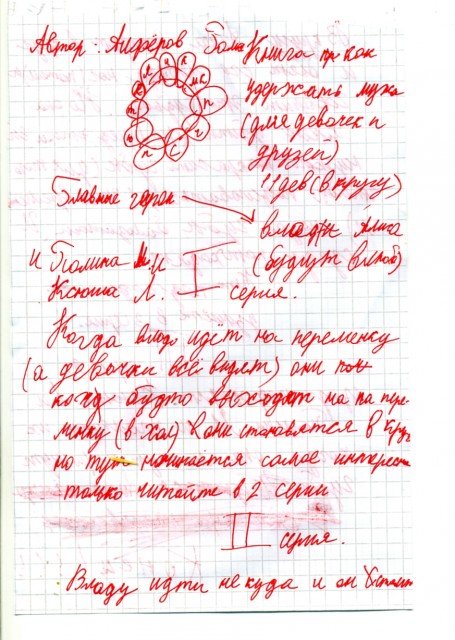 Автор: Алфёров Бога
Книга про как
удержать мужа
(для девочек и
друзей)
11 дев (в кругу)
Л и К
МК
П
Г
С
П
Ю
Т
Главные герои
владик Алига
(будут влюб)
и Полина М.И
Ксюша Л.
I
серия.
Когда владо идёт на переменку
(а девочки всё видят) они
как будто выходят на па пере-
менку (в хол) они становятся в круг
но тут начинается самое интересн
только читайте в 2 серии
II
серия.
Владу идти не куда и он